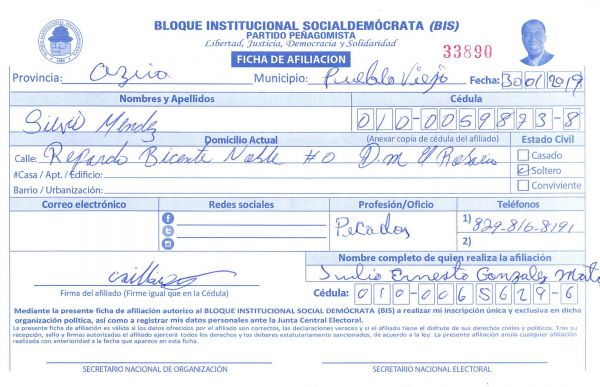 BLOQUE INSTITUCIONAL SOCIALDEMÓCRATA (BIS)
PARTIDO PEÑAGOMISTA
Libertad, Justicia, Democracia y Solidaridad
33890
FICHA DE AFILIACION
Provincia: Azua Municipio: Pueblo Viejo Fecha: 30/01/2019
Nombres y Apellidos Cédula
Silvio Mendez 010-0059893-8
Domicilio Actual (Anexar copia de cédula del afiliado) Estado Civil
Calle: Reparto Bicente Noble #0 D.m El Rosario
Casado
#Casa / Apt. / Edificio: Soltero
Barrio / Urbanización: Conviviente
Correo electrónico Redes sociales Profesión/Oficio Teléfonos
Pecador 1) 829-816-8191
2)
Nombre completo de quien realiza la afiliación
Julio Ernesto Gonzalez Mato
Firma del afiliado (Firme igual que en la Cédula) Cédula: 010-0065629-6
Mediante la presente ficha de afiliación autorizo al BLOQUE INSTITUCIONAL SOCIAL DEMÓCRATA (BIS) a realizar mi inscripción única y exclusiva en dicha
organización política, así como a registrar mis datos personales ante la Junta Central Electoral.
La presente ficha de afiliación es válida si los datos ofrecidos por el afiliado son correctos, las declaraciones veraces y si el afiliado tiene el disfrute de sus derechos civiles y políticos. Tras su
recepción, sello y firmas autorizadas el afiliado ejercerá todos los derechos y los deberes estatutariamente sancionados, de acuerdo a la ley. La presente afiliación anula cualquier afiliación
realizada con anterioridad a la fecha que aparece en esta ficha.
SECRETARIO NACIONAL DE ORGANIZACIÓN SECRETARIO NACIONAL ELECTORAL